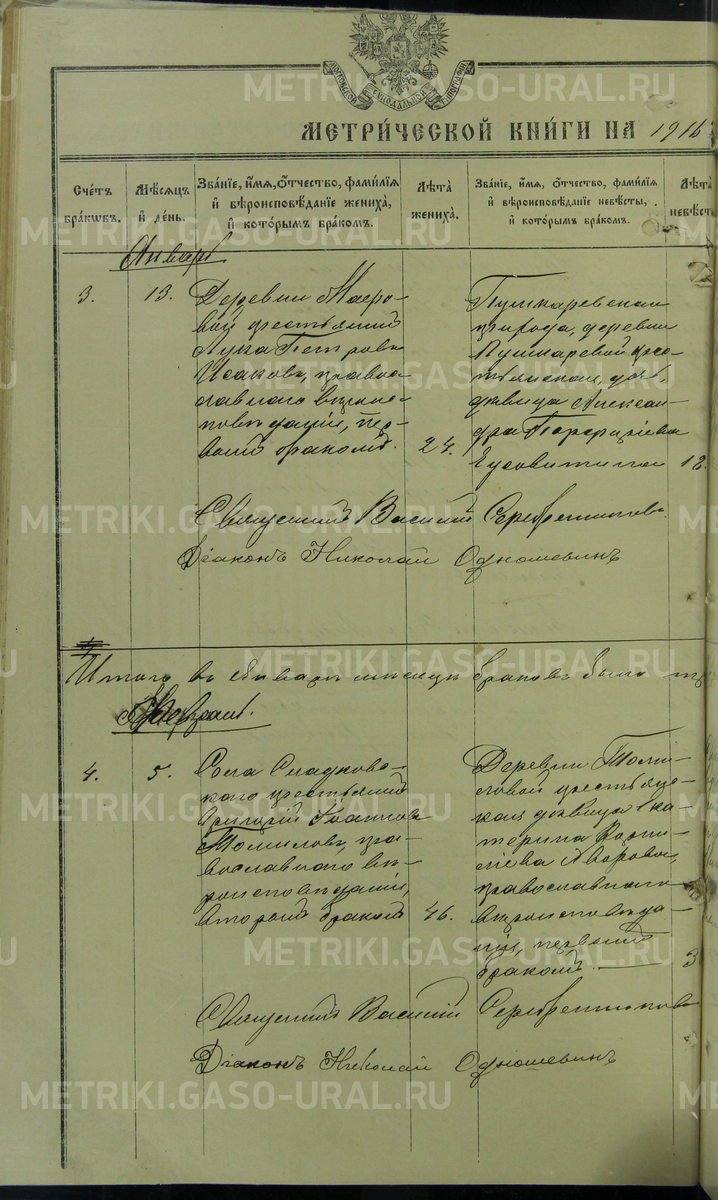 МЕТРИ́ЧЕСКОЙ КНИ́ГИ НА 1916
Сче́тъ бра́ковъ.
Мѣ́сѧцъ и҆ де́нь.
Зва́нїе, и҆́мѧ, ѻ҆́тчество, фами́лїѧ и҆ вѣроисповѣ́данїе жениха̀, и҆ кото́рымъ бра́комъ.
Лѣ́та жениха̀.
Зва́нїе, и҆́мѧ, ѻ҆́тчество, фами́лїѧ и҆ вѣроисповѣ́данїе невѣ́сты, и҆ кото́рымъ бра́комъ.
Лѣ́та невѣ́сты
Январь
3.
13.
Деревни Маеро-
вой крестьянинъ
Лука Петровъ
Исаковъ, правос-
лавнаго вѣроис-
повѣданія, пер-
вымъ бракомъ.
24.
Пушкаревской
деревни
Пушкаревой крес-
тьянская дочь,
дѣвица Алексан-
дра Порфиріева
18.
Священникъ Василій Серебренниковъ
Діаконъ Николай Одношевинъ
Итого въ январѣ мѣсяцѣ браковъ было
Февраль.
4.
5.
Села Сладков-
скаго крестьянинъ
Григорій Іоанновъ
Томиловъ, пра-
вославнаго вѣ-
роисповѣданія,
вторымъ бракомъ
46.
Деревни Томи-
ловой крестьянс-
кая дѣвица Ека-
терина
православнаго
вѣроисповѣда-
нія, первымъ
бракомъ.
3
Священникъ Василій Серебренниковъ
Діаконъ Николай Одношевинъ
METRIKI.GASO-URAL.RU